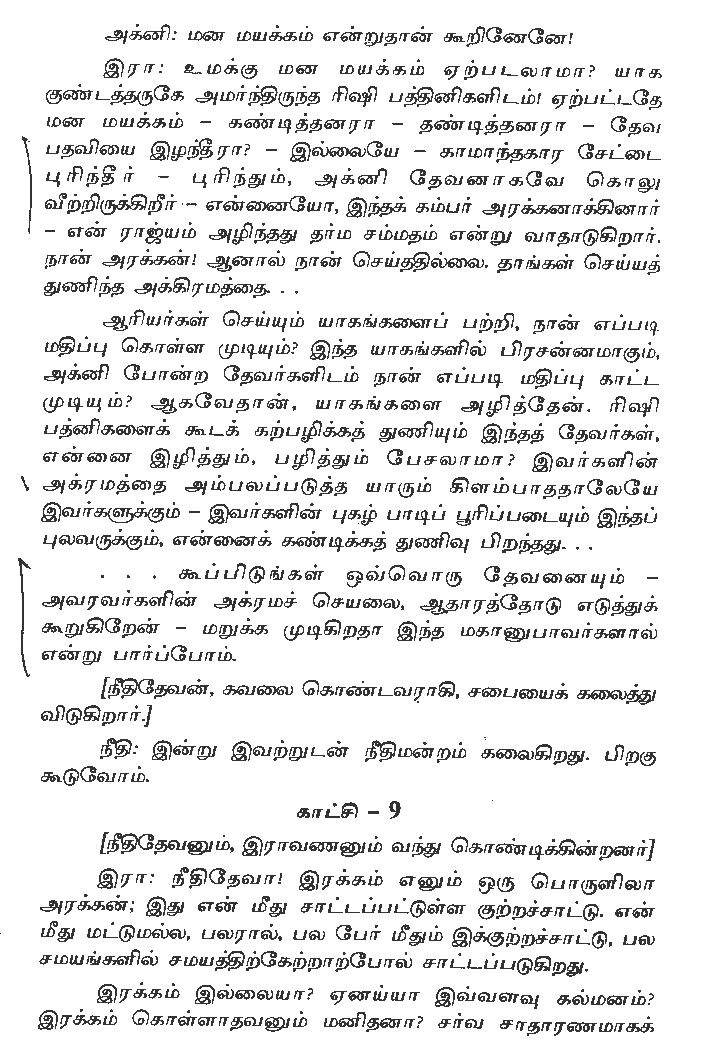 அக்னி: மன மயக்கம் என்றுதான் கூறினேனே!
இரா: உமக்கு மன மயக்கம் ஏற்படலாமா? யாக
குண்டத்தருகே அமர்ந்திருந்த ரிஷி பத்தினிகளிடம்! ஏற்பட்டதே
மன மயக்கம் – கண்டித்தனரா – தண்டித்தனரா – தேவ
பதவியை இழந்தீரா? – இல்லையே – காமாந்தகார சேட்டை
புரிந்தீர் – புரிந்தும், அக்னி தேவனாகவே கொலு
வீற்றிருக்கிறீர் – என்னையோ, இந்தக் கம்பர் அரக்கனாக்கினார்
– என் ராஜ்யம் அழிந்தது தர்ம சம்மதம் என்று வாதாடுகிறார்.
நான் அரக்கன்! ஆனால் நான் செய்ததில்லை. தாங்கள் செய்யத்
துணிந்த அக்கிரமத்தை. . .
ஆரியர்கள் செய்யும் யாகங்களைப் பற்றி, நான் எப்படி
மதிப்பு கொள்ள முடியும்? இந்த யாகங்களில் பிரசன்னமாகும்,
அக்னி போன்ற தேவர்களிடம் நான் எப்படி மதிப்பு காட்ட
முடியும்? ஆகவேதான், யாகங்களை அழித்தேன். ரிஷி
பத்னிகளைக் கூடக் கற்பழிக்கத் துணியும் இந்தத் தேவர்கள்,
என்னை இழித்தும், பழித்தும் பேசலாமா? இவர்களின்
அக்ரமத்தை அம்பலப்படுத்த யாரும் கிளம்பாததாலேயே
இவர்களுக்கும் – இவர்களின் புகழ் பாடிப் பூரிப்படையும் இந்தப்
புலவருக்கும், என்னைக் கண்டிக்கத் துணிவு பிறந்தது. . .
. . . கூப்பிடுங்கள் ஒவ்வொரு தேவனையும் –
அவரவர்களின் அக்ரமச் செயலை, ஆதாரத்தோடு எடுத்துக்
கூறுகிறேன் – மறுக்க முடிகிறதா இந்த மகானுபாவர்களால்
என்று பார்ப்போம்.
[நீதிதேவன், கவலை கொண்டவராகி, சபையைக் கலைத்து
விடுகிறார்.]
நீதி: இன்று இவற்றுடன் நீதிமன்றம் கலைகிறது. பிறகு
கூடுவோம்.
காட்சி – 9
[நீதிதேவனும், இராவணனும் வந்து கொண்டிக்கின்றனர்]
இரா: நீதிதேவா! இரக்கம் எனும் ஒரு பொருளிலா
அரக்கன்; இது என் மீது சாட்டப்பட்டுள்ள குற்றச்சாட்டு. என்
மீது மட்டுமல்ல, பலரால், பல பேர் மீதும் இக்குற்றச்சாட்டு, பல
சமயங்களில் சமயத்திற்கேற்றாற்போல் சாட்டப்படுகிறது.
இரக்கம் இல்லையா? ஏனய்யா இவ்வளவு கல்மனம்?
இரக்கம் கொள்ளாதவனும் மனிதனா? சர்வ சாதாரணமாகக்